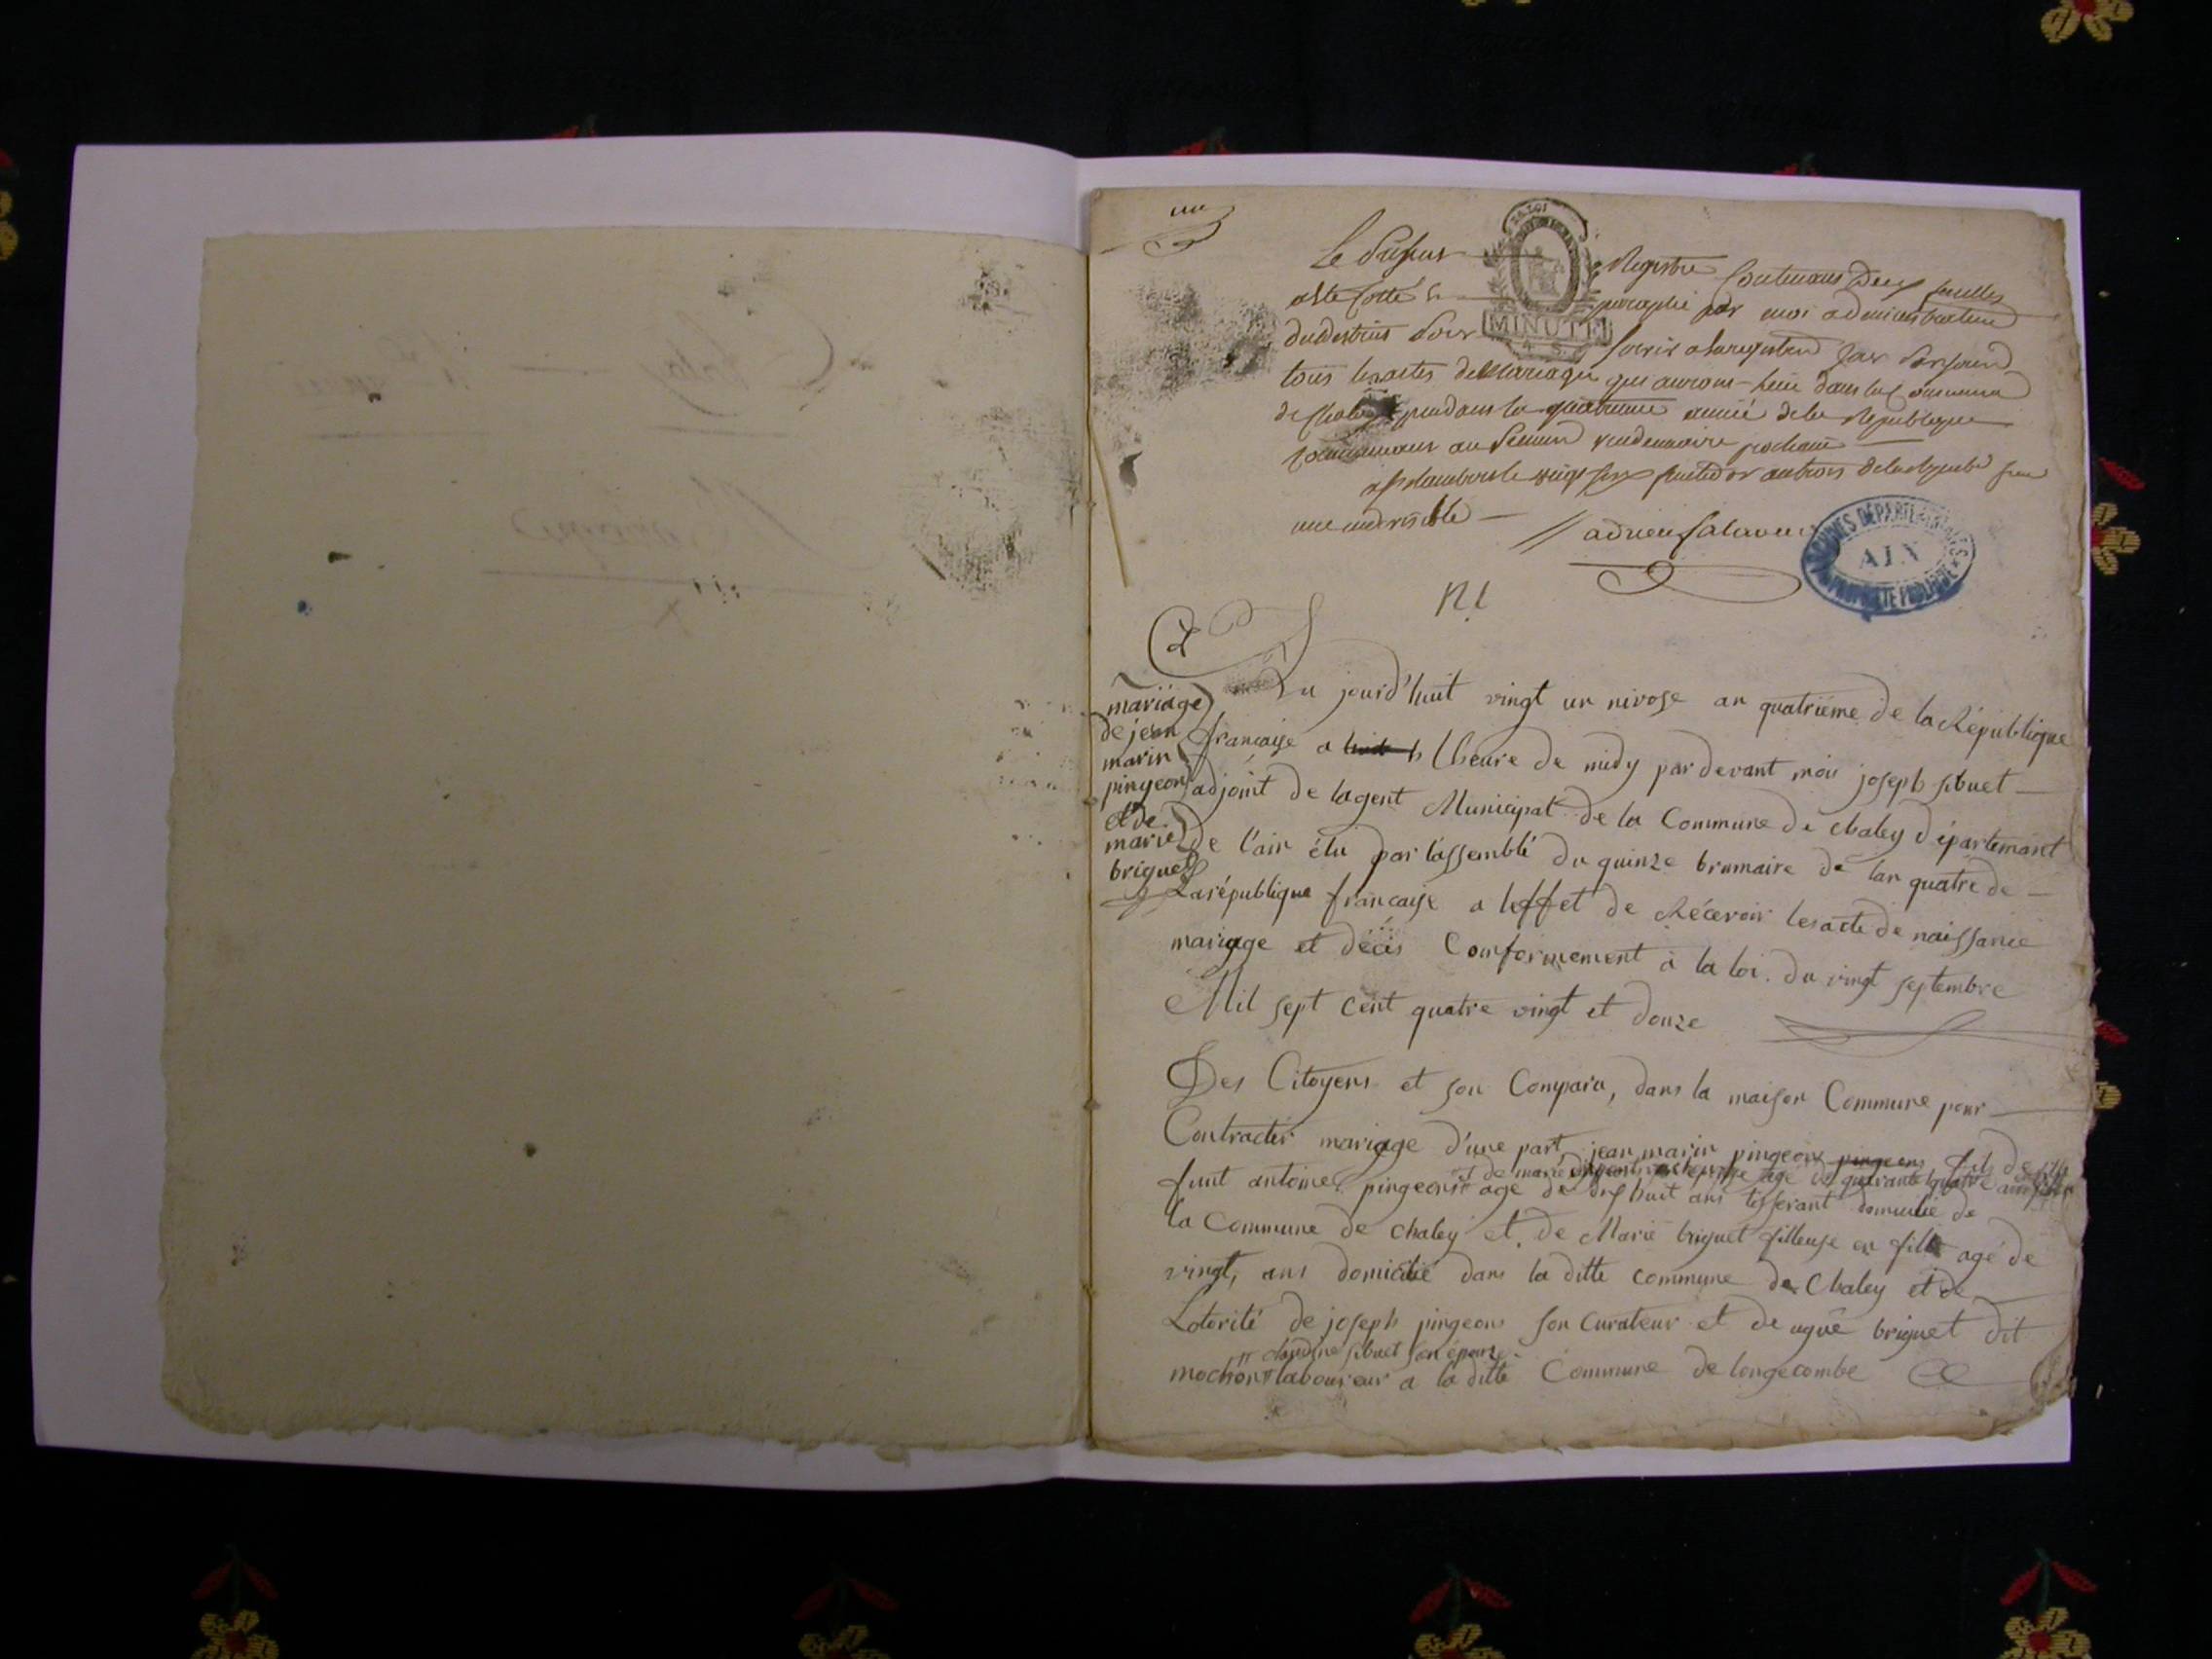 un
Le présent Registre contenant deux feuilles
a été cotté et paraphé par moi administrateur
du district pour servir a enregistrer
tous les actes de Mariage qui auront lieu dans la commune
de Chaley pendant la quatrieme année de la République
commençant au premier vendemiaire prochain
a St Rambert le vingt six fructidor an trois de la republique
une indivisible
adrien
LA LOI
MINUTE
ARCHIVES DÉPARTEMENTALES
AIN
PROPRIÉTÉ PUBLIQUE
N.1
mariage
de jean
marin
pingeon
et de
marie
briguet
Du jourd'huit vingt un nivose an quatriéme de la République
française a lheure de midy par devant moi joseph sibuet
adjoint de lagent Municipal de la Commune de chaley département
de l'ain élu par l'assemblé du quinze brumaire de lan quatre de
La république française a leffet de Récevoir les acte de naissance
mariage et décés Conformement à la loi du vingt septembre
Mil sept cent quatre vingt et douze
Des Citoyens et son Comparu, dans la maison Commune pour
Contracter mariage d'une part jean marin pingeon pingeons fils de
et de marie agé de quarante quatre ans
funt antoine pingeons agé de dix huit ans tisserant domicilié de
la Commune de chaley et de Marie briguet filleuse en fille agé de
vingt, ans domicilié dans la ditte commune de Chaley et de
Lotorité de joseph pingeons son curateur et de ugue briguet dit
claudine sibuet son épouze
mochon laboureur a la ditte Commune de longecombe